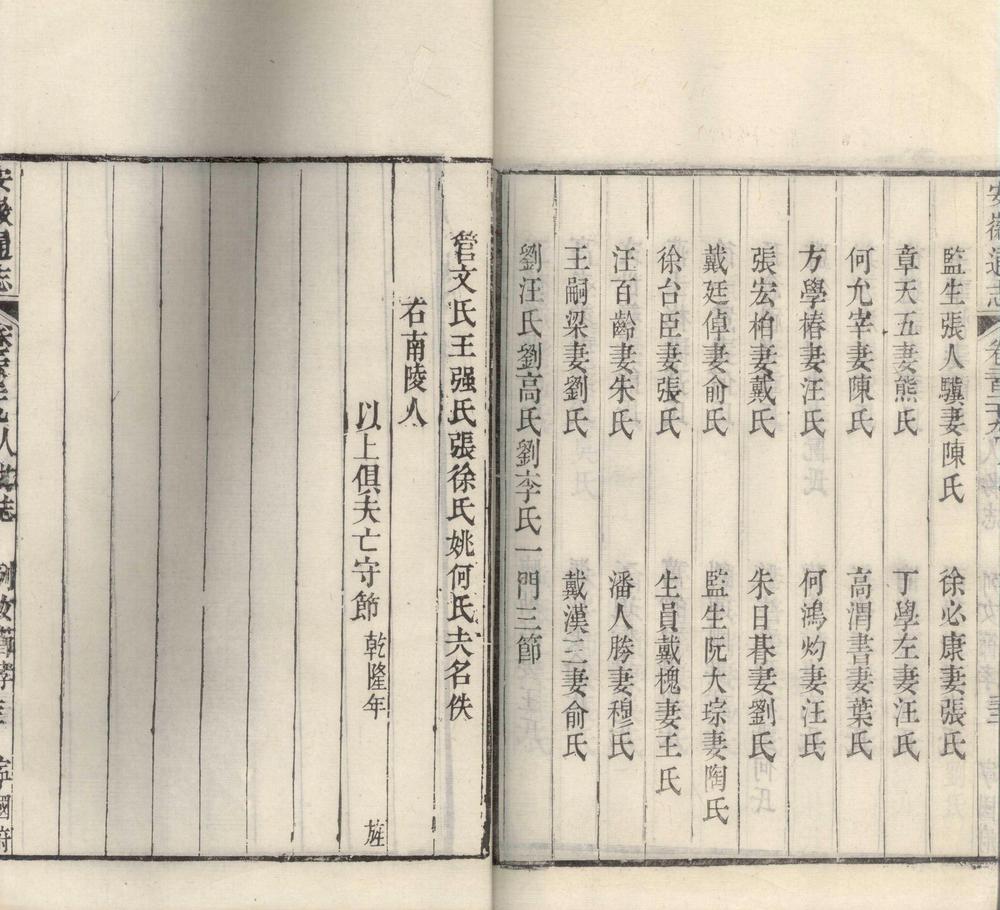 安徽通志
監生張人驥妻陳氏　徐必康妻張氏
章天五妻熊氏　丁學左妻汪氏
何允宰妻陳氏　高渭書妻葉氏
方學椿妻汪氏　何鴻灼妻汪氏
張宏柏妻戴氏　朱日暮妻劉氏
戴廷倬妻俞氏　監生阮大琮妻陶氏
徐台臣妻張氏　生員戴槐妻王氏
汪百齡妻朱氏　潘人勝妻穆氏
王嗣梁妻劉氏　戴漢三妻俞氏
劉汪氏劉高氏劉李氏一門三節
管文氏王强氏張徐氏姚何氏夫名佚
右南陵人
以上俱夫亡守節　乾隆年　旌
安徽通志　人物志　列女　寧國府